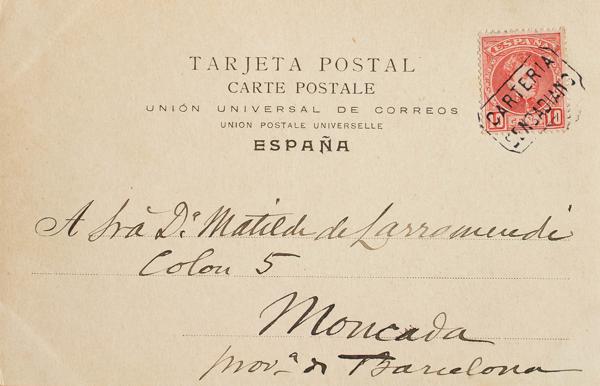 TARJETA POSTAL
CARTE POSTALE
UNIÓN UNIVERSAL DE CORREOS
UNION POSTALE UNIVERSELLE
ESPAÑA
ESPAÑA
10
CARTERIA
A Srā D.ª Matilde de Larramendi
Colon 5
Moncada
prov.ª de Barcelona